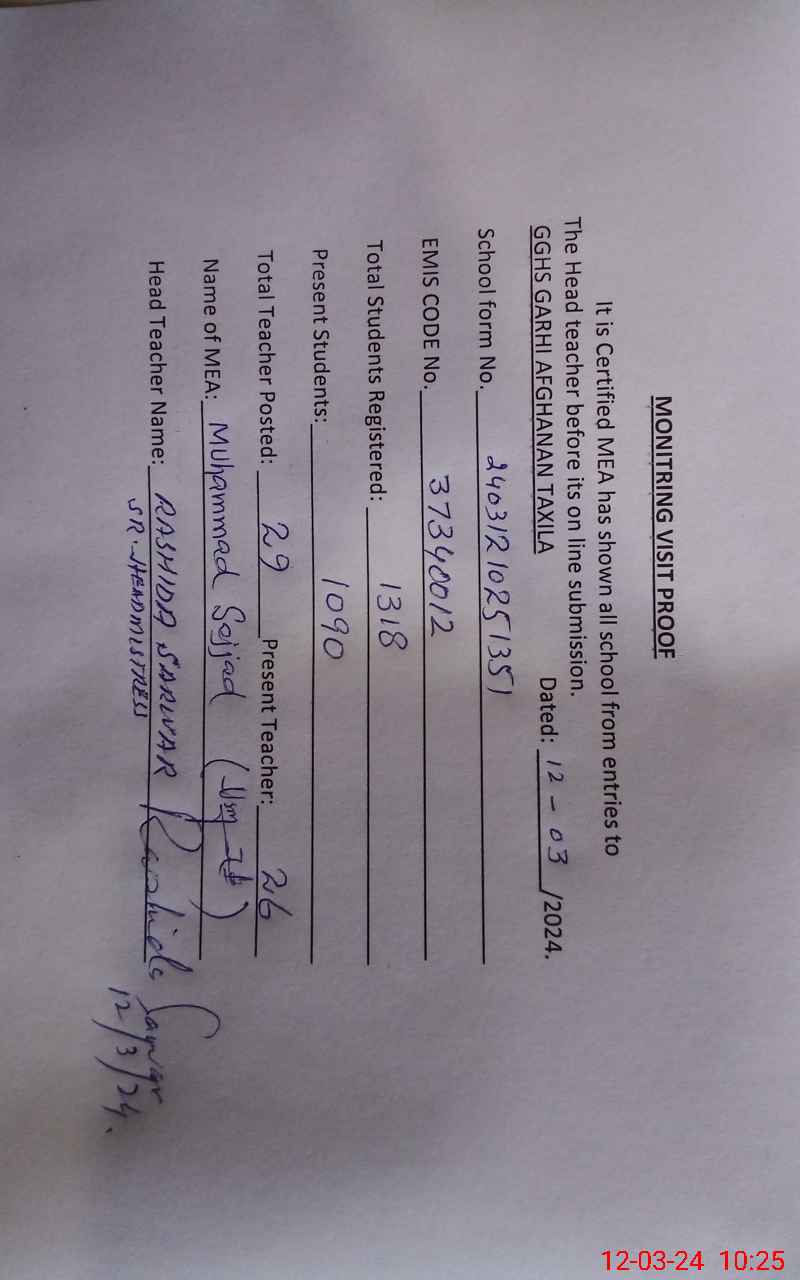 MONITRING VISIT PROOF
It is Certified MEA has shown all school from entries to
The Head teacher before its on line submission.
GGHS GARHI AFGHANAN TAXILA Dated: 12 - 03 /2024.
School form No. 24031210251351
EMIS CODE No. 37340012
Total Students Registered: 1318
Present Students: 1090
Total Teacher Posted: 29 Present Teacher: 26
Name of MEA: Muhammad Sajjad
Head Teacher Name: RASHIDA SARWAR Rashida Sarwar
SR. HEADMISTRESS 12/3/24.
12-03-24 10:25